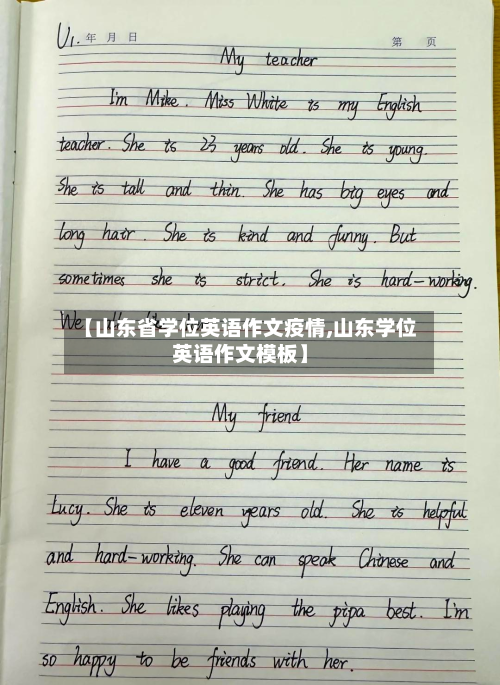 U1. 年 月 日 第 页
My teacher
I'm Mike. Miss White is my English
teacher. She is 23 years old. She is young.
She is tall and thin. She has big eyes and
long hair. She is kind and funny. But
sometimes she is strict. She is hard-working.
We
【山东省学位英语作文疫情,山东学位
英语作文模板】
My friend
I have a good friend. Her name is
Lucy. She is eleven years old. She is helpful
and hard-working. She can speak Chinese and
English. She likes playing the pipa best. I'm
so happy to be friends with her.